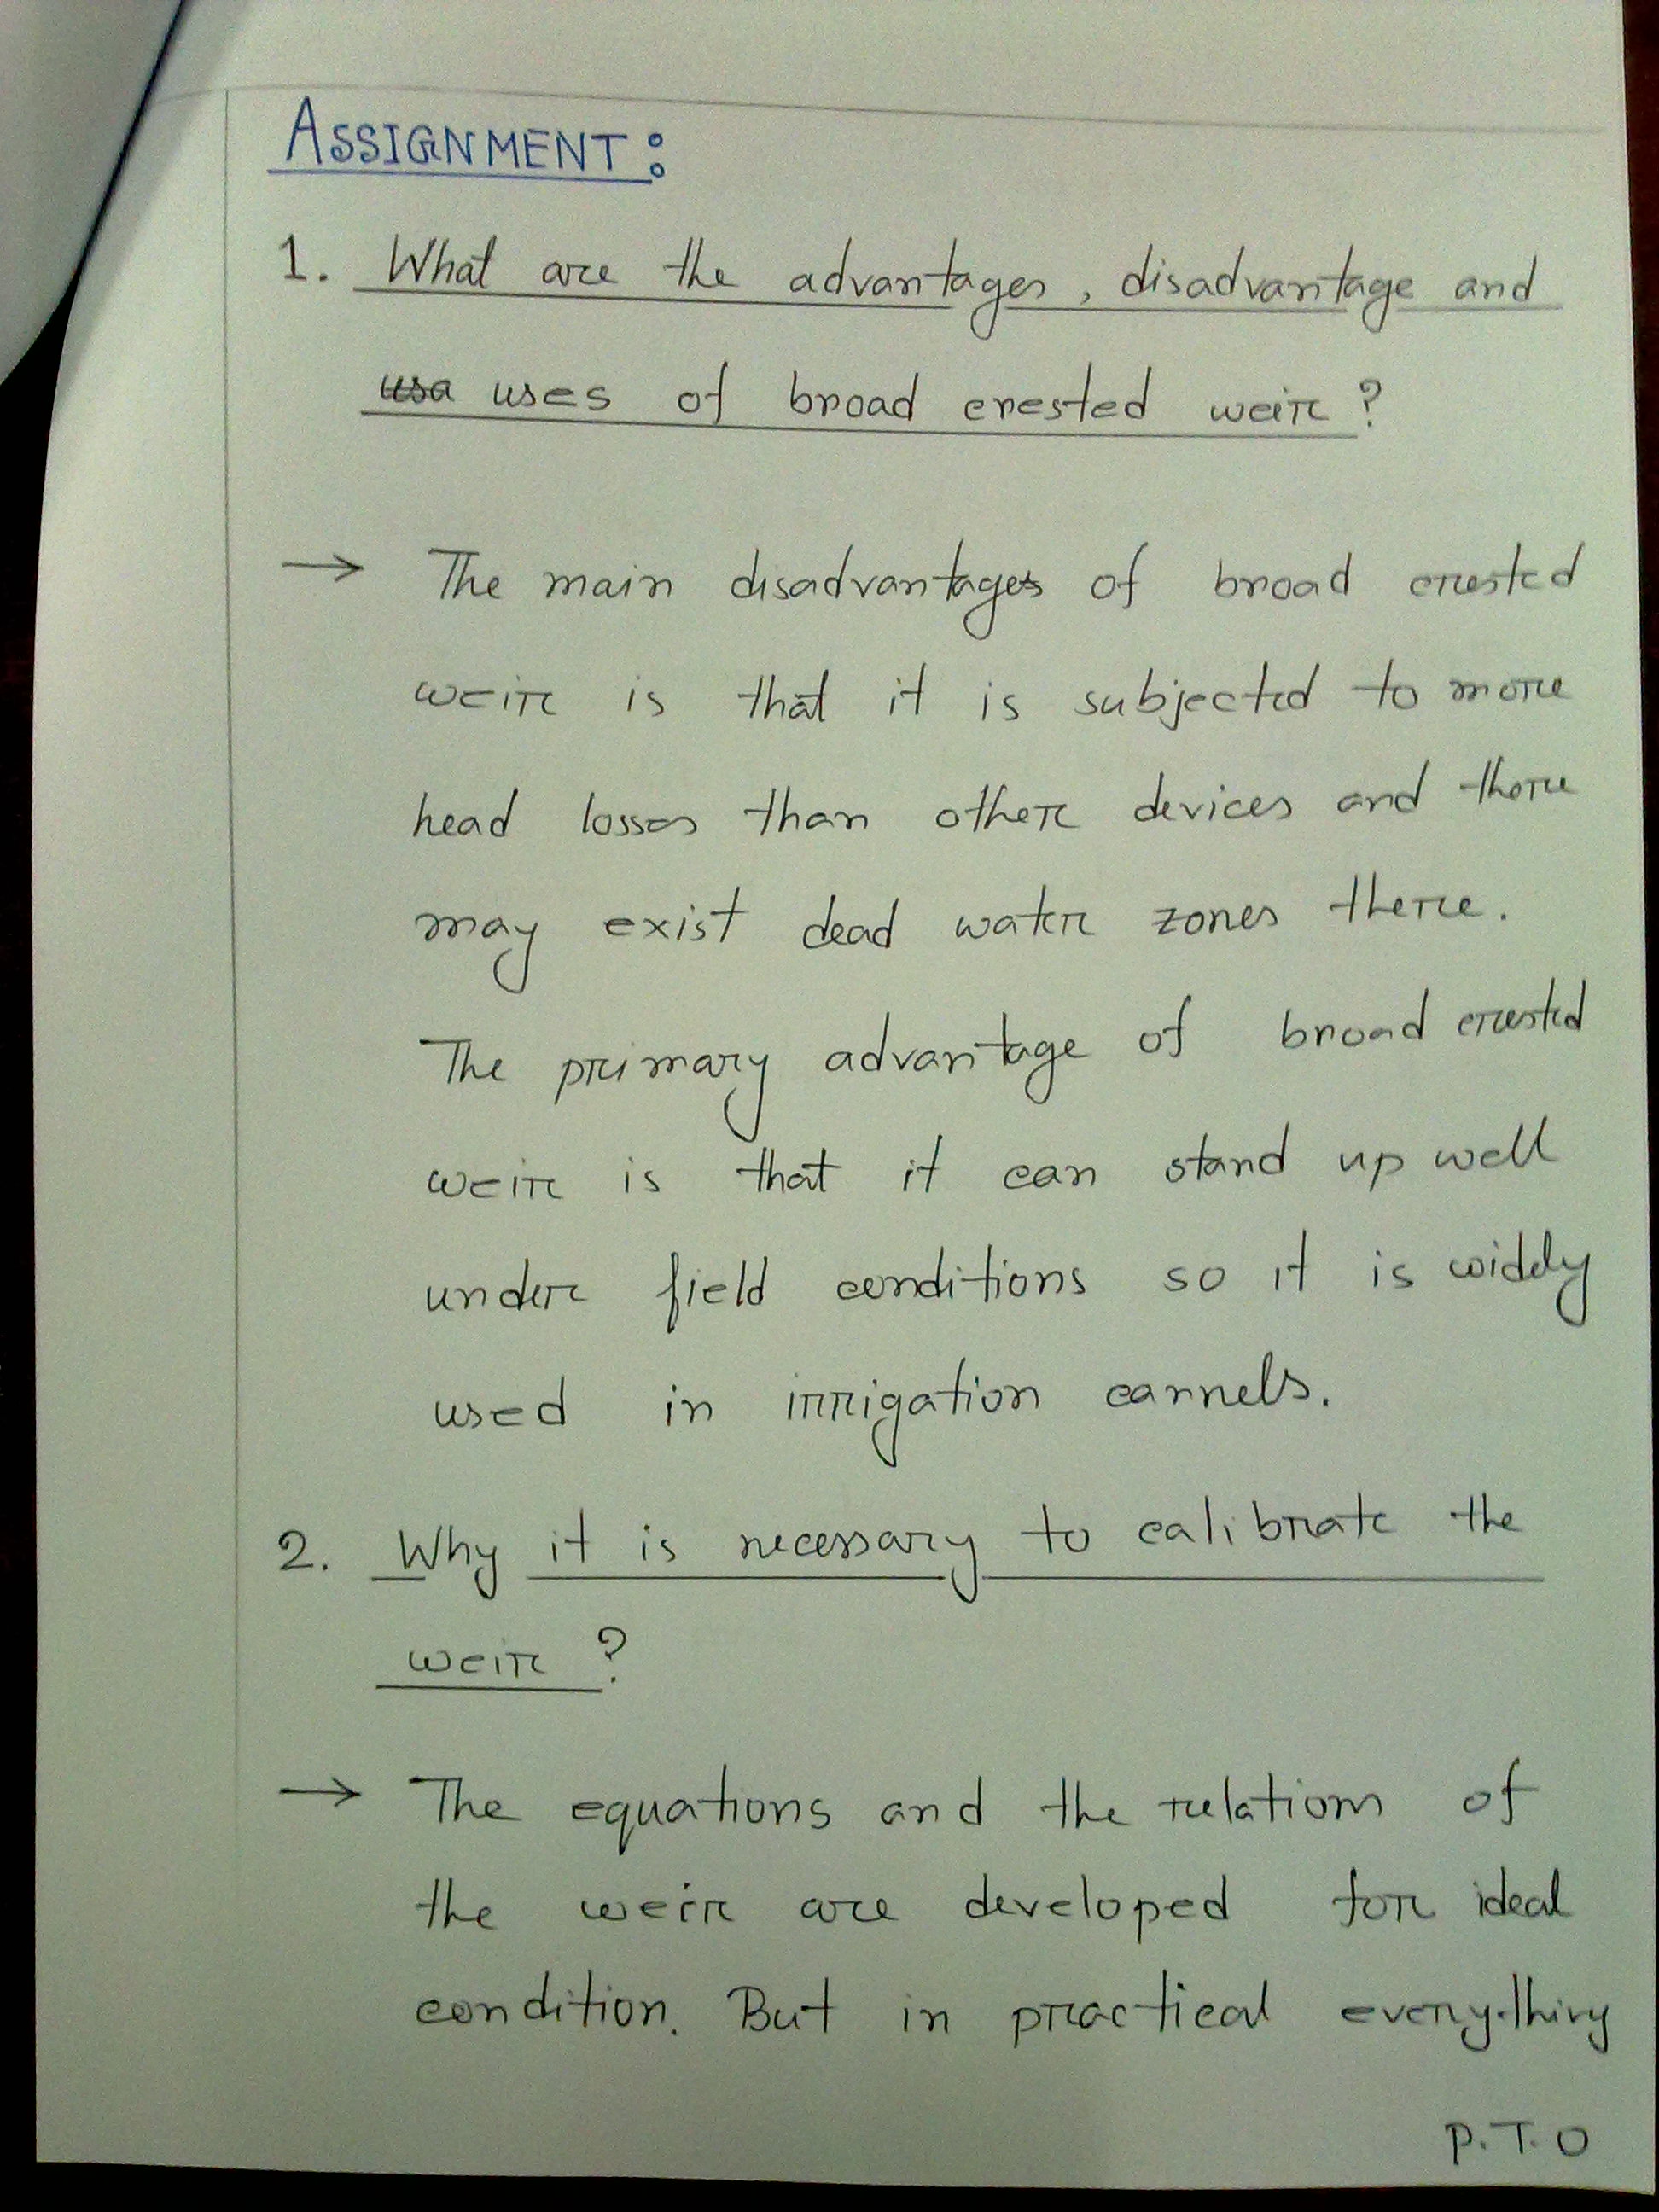 ASSIGNMENT:
1. What are the advantages, disadvantage and
usa uses of broad crested weir?
→ The main disadvantages of broad crested
weir is that it is subjected to more
head losses than other devices and there
may exist dead water zones there.
The primary advantage of broad crested
weir is that it can stand up well
under field conditions so it is widely
used in irrigation cannels.
2. Why it is necessary to calibrate the
weir?
→ The equations and the relations of
the weir are developed for ideal
condition. But in practical everything
P.T.O